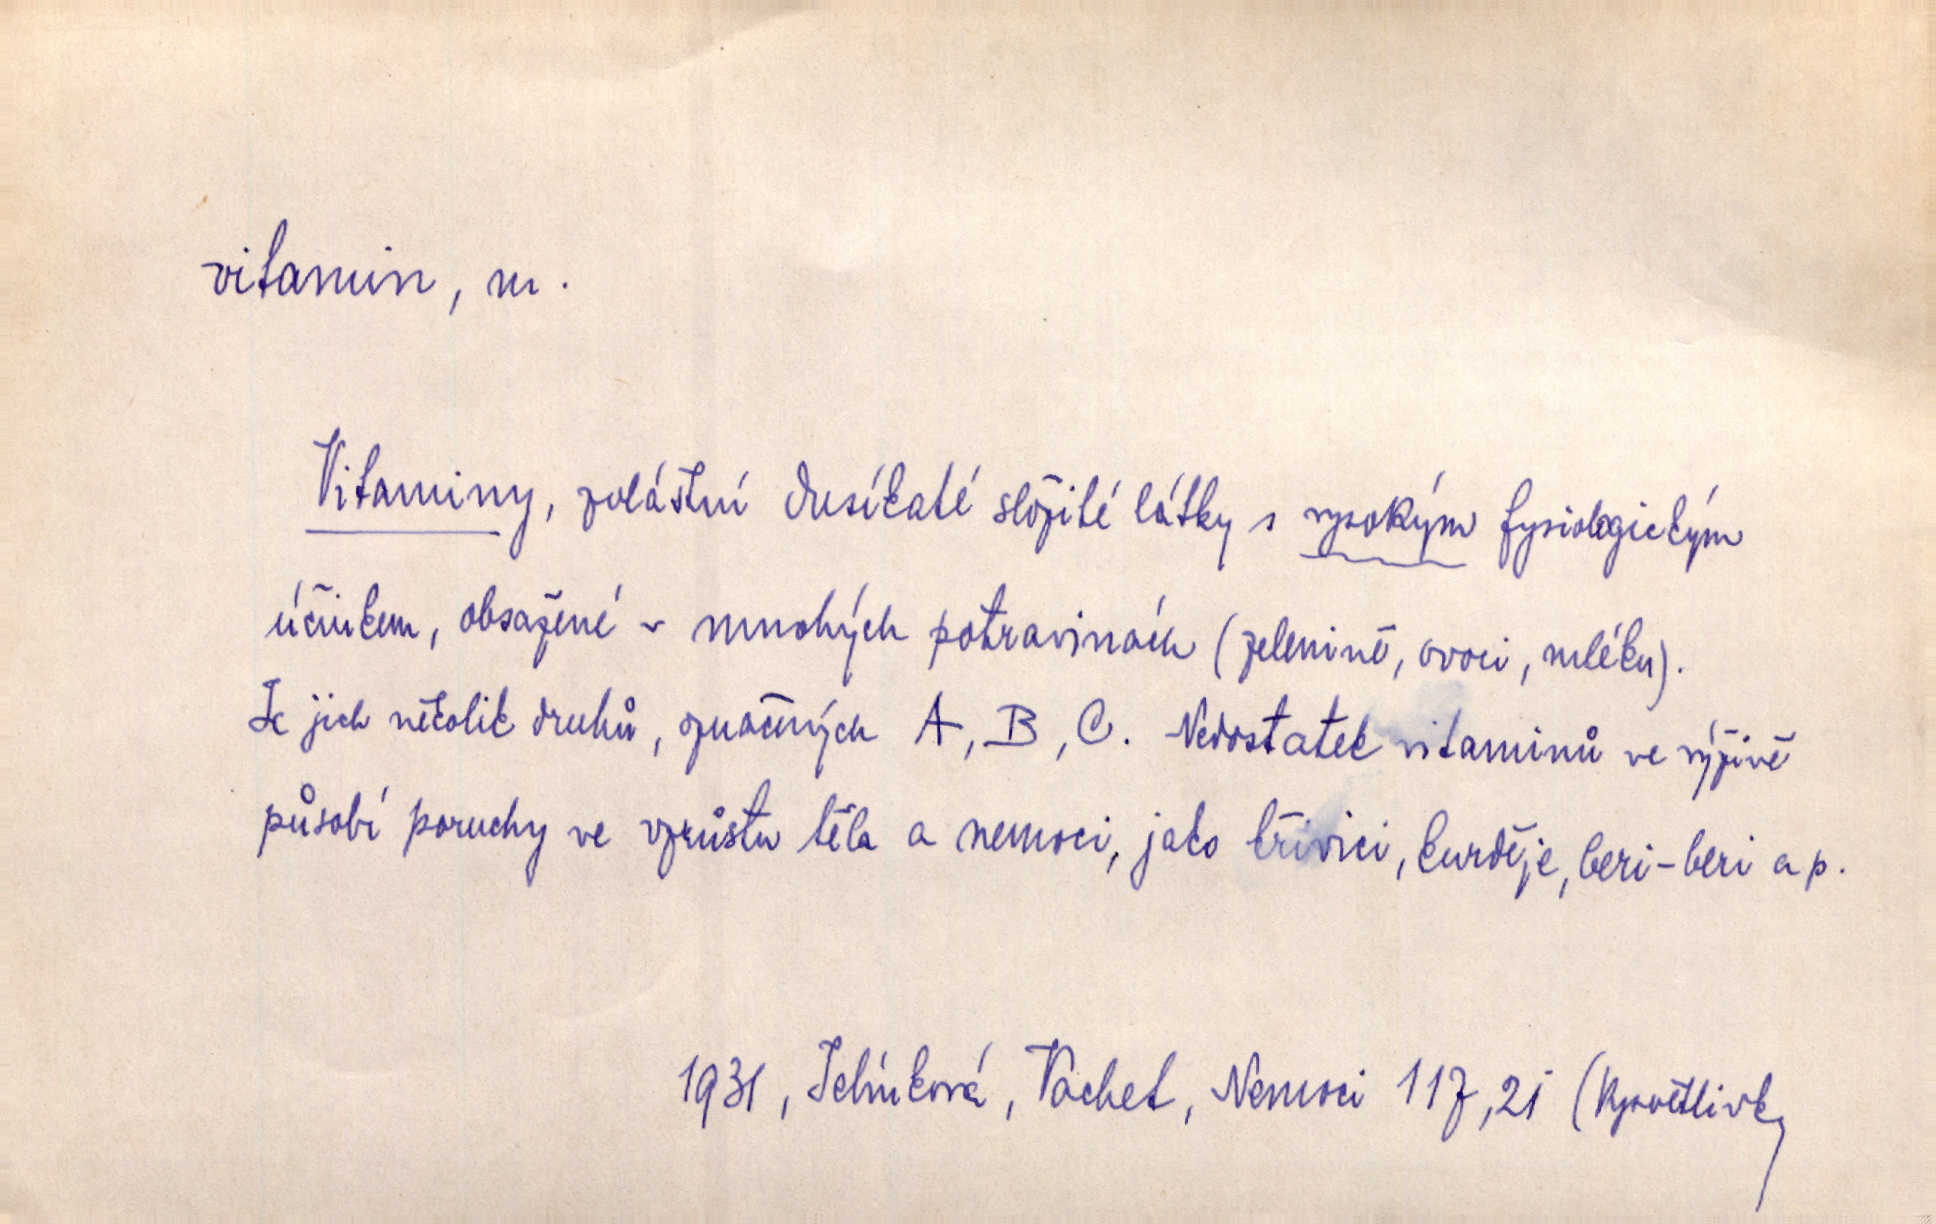 vitamin, m.
Vitaminy, zvláštní dusíkaté složité látky s vysokým fysiologickým
účinkem, obsažené v mnohých potravinách (zelenině, ovoci, mléku).
Je jich několik druhů, značených A, B, C. Nedostatek vitaminů ve výživě
působí poruchy ve vzrůstu těla a nemoci, jako křivici, kurděje, beri-beri a p.
1931, Jelínková, Vachet, Nemoci 117, 21 (Vysvětlivky